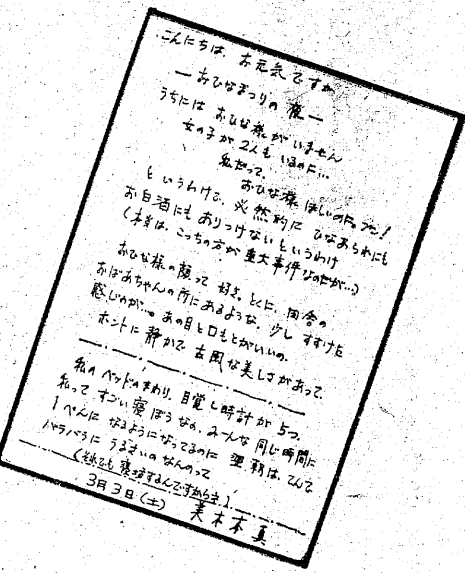 こんにちは、お元気ですか
—おひなまつりの夜—
うちには おひな様がいません
女の子が 2人も いるのに…
私だって、
おひな様 ほしいのに。
というわけで、必然的に ひなあられにも
お白酒にも ありつけないというわけ
(本当は、こっちの方が 重大事件なのだが…)
おひな様の顔って 好き。とくに、田舎の
おばあちゃんの所にあるような、少し すすけた
感じのが…。あの目と口もとがいいの。
ホントに 静かで 古風な美しさがあって。
私の ベッドのまわり、目覚し時計が 5つ。
私って、すごい 寝ぼうなの。みーんな 同じ時間に
1ぺんに なるようになってるのに 翌朝は、てんで
バラバラに うるさいの なんのって
(それでも 寝坊するんですからネ)
3月3日(土) 美木本 真